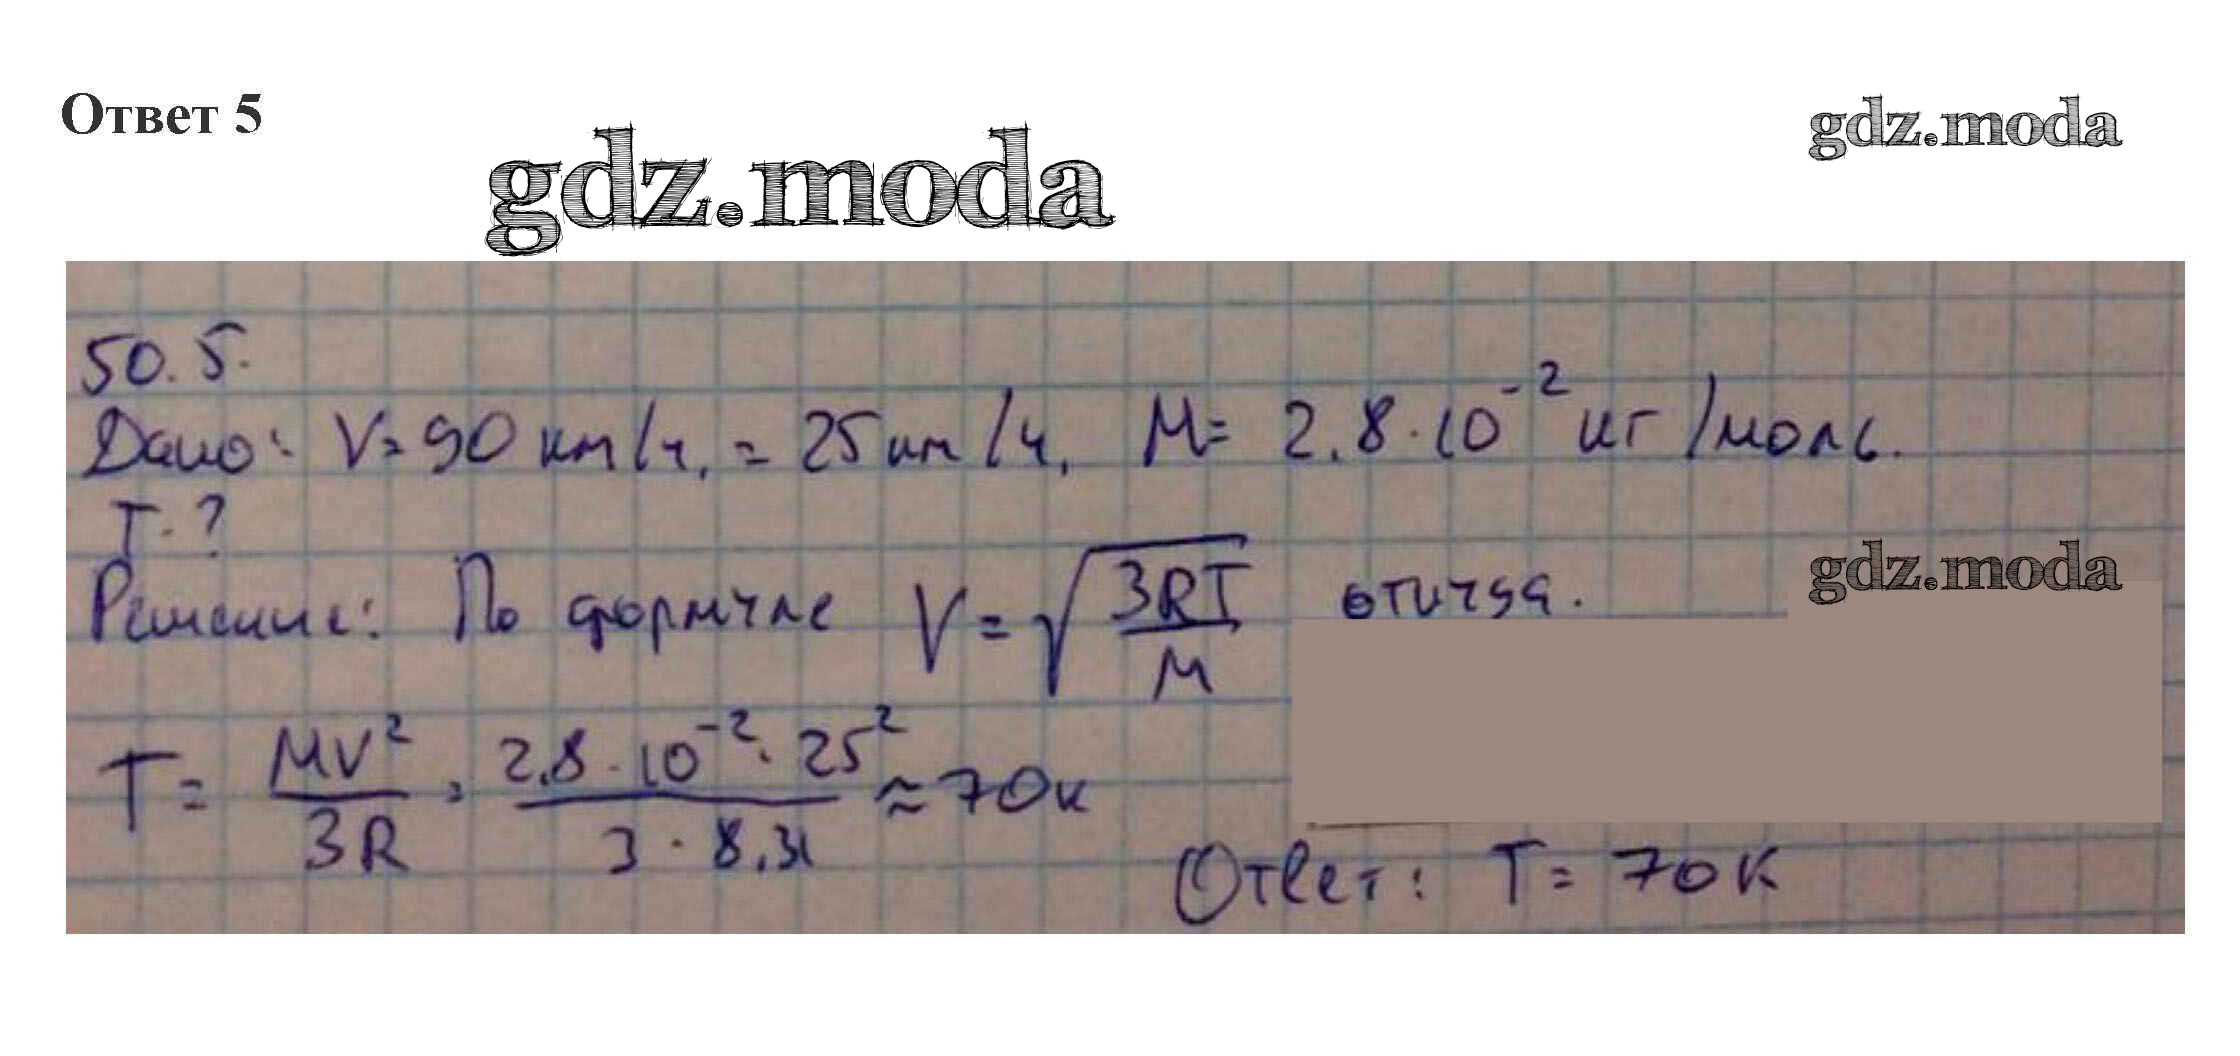 Ответ 5
gdz.moda
gdz.moda
50.5.
Дано: V= 90 км/ч. = 25 км/ч. M= 2.8·10⁻² кг/моль.
T-?
Решение: По формуле V = √(3RT/M) отчуда.
gdz.moda
T = MV²/3R = 2.8·10⁻²·25²/3·8.31 ≈ 70к
Ответ: T= 70К